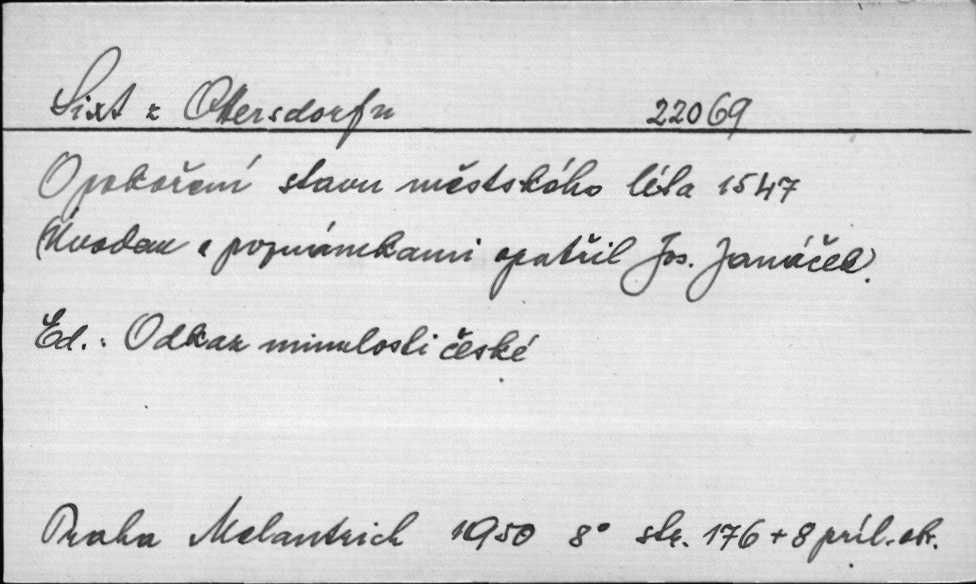 Sixt z Ottersdorfu 22069
O pokoření stavu městského léta 1547
(Úvodem a poznámkami opatřil Jos. Janáček)
Ed.: Odkaz minulosti české
Praha Melantrich 1950 8° str. 176 + 8 příl. ob.